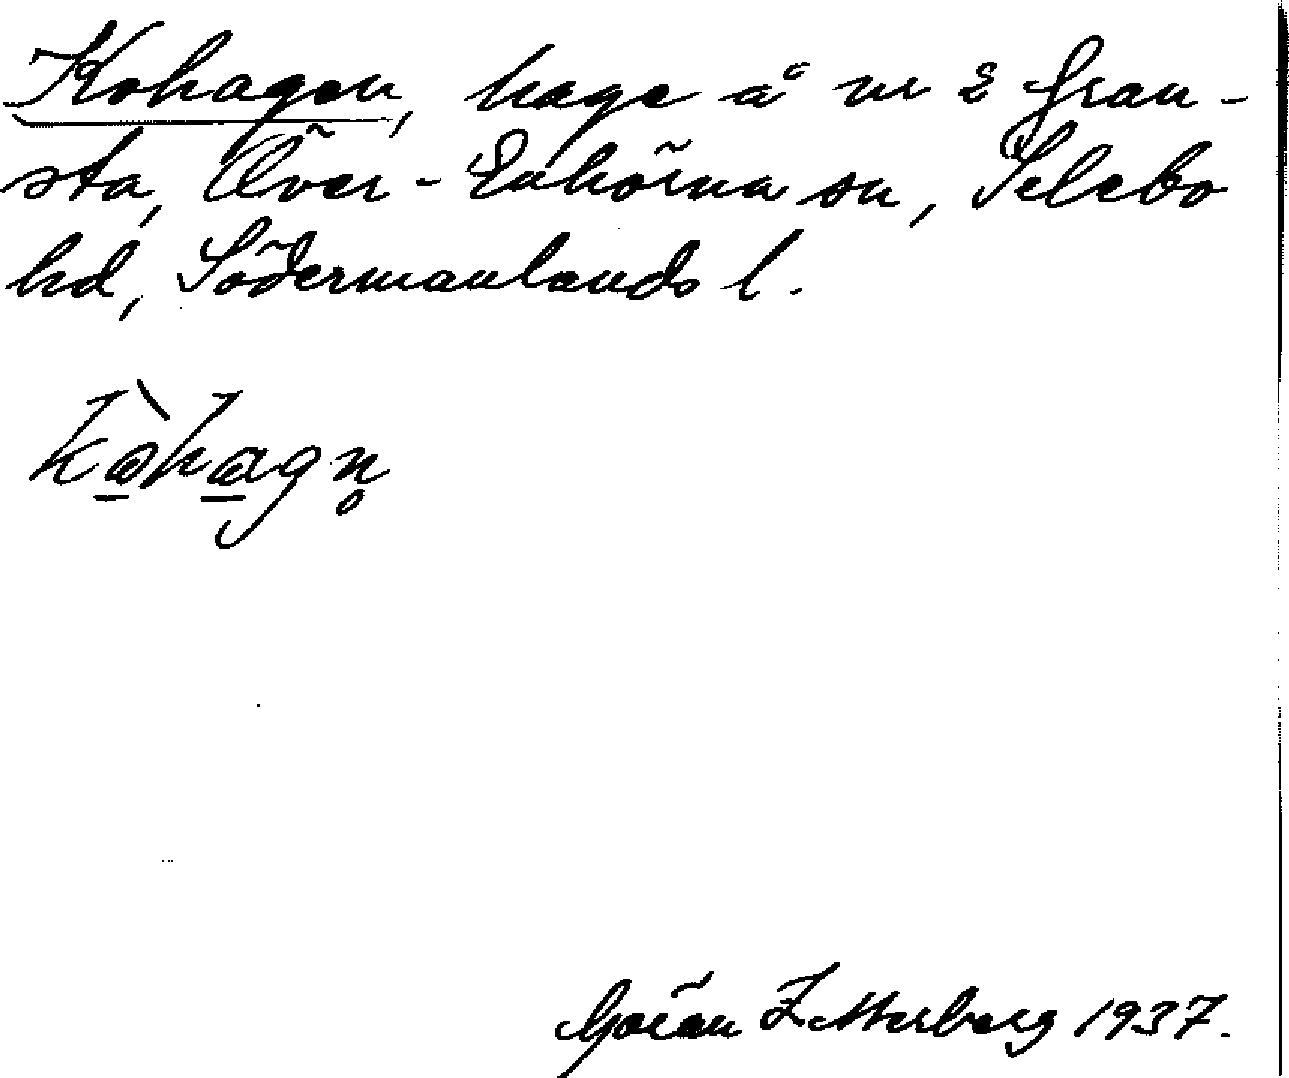 Kohagen, hage å nr 2 Gran-
sta, Över-Enhörna sn, Selebo
hd, Södermanlands l.
kὼ̲ha̲gn̥
Göran Zetterberg 1937.